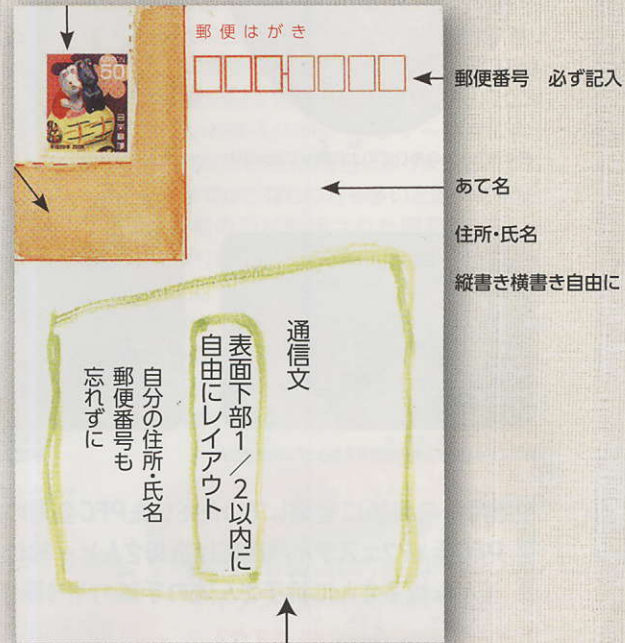 郵便はがき
50
日本郵便
郵便番号 必ず記入
あて名
住所・氏名
縦書き横書き自由に
通信文
表面下部1/2以内に
自由にレイアウト
自分の住所・氏名
郵便番号も
忘れずに